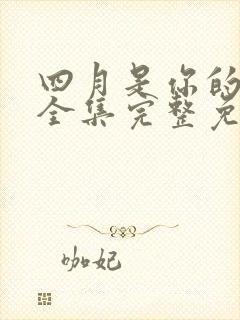 四月是你的
全集完整免
咖妃